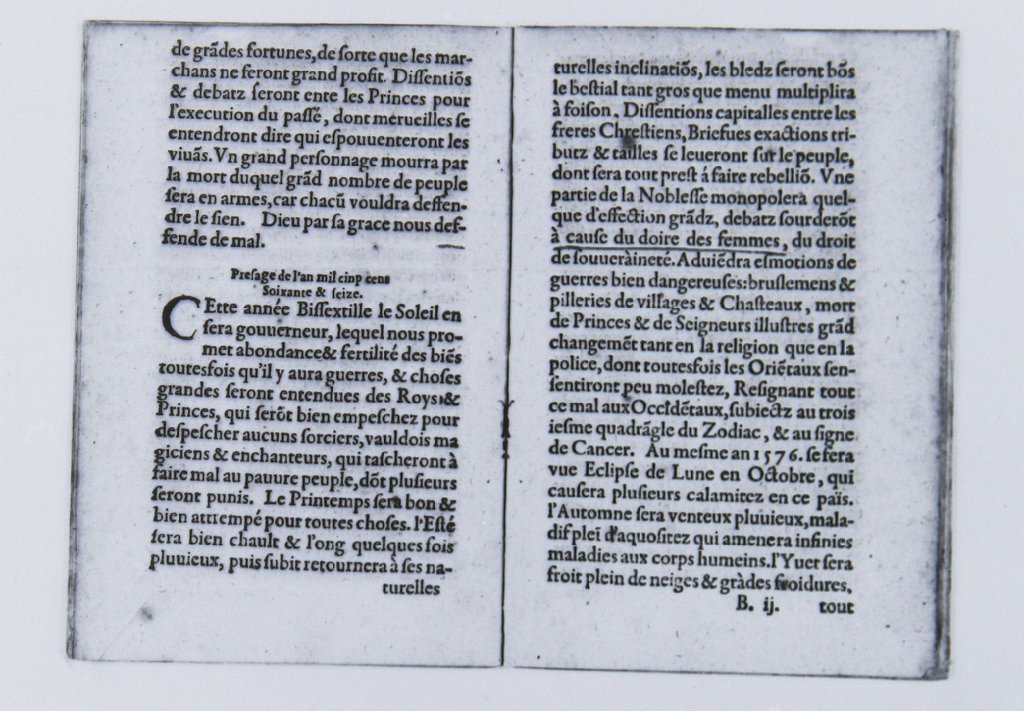 de grãdes fortunes, de ſorte que les mar-
chans ne feront grand profit. Diſſentiõs
& debatz ſeront ente les Princes pour
l'execution du paſſé, dont merueilles ſe
entendront dire qui eſpouuenteront les
viuãs. Vn grand perſonnage mourra par
la mort duquel grãd nombre de peuple
ſera en armes, car chacũ vouldra deffen-
dre le ſien. Dieu par ſa grace nous def-
fende de mal.
Preſage de l'an mil cinp cens
Soixante & ſeize.
CEtte année Biſſextille le Soleil en
ſera gouuerneur, lequel nous pro-
met abondance& fertilité des biẽs
toutesfois qu'il y aura guerres, & choſes
grandes ſeront entendues des Roys,&
Princes, qui ſerõt bien empeſchez pour
deſpeſcher aucuns ſorciers, vauldois ma
giciens & enchanteurs, qui taſcheront à
faire mal au pauure peuple, dõt pluſieurs
ſeront punis. Le Printemps ſera bon &
bien attrempé pour toutes choſes. l'Eſté
ſera bien chault & l'ong quelques fois
pluuieux, puis ſubit retournera à ſes na-
turelles
turelles inclinatiõs, les bledz ſeront bõs
le beſtial tant gros que menu multiplira
à foiſon. Diſſentions capitalles entre les
freres Chreſtiens, Briefues exactions tri-
butz & tailles ſe leueront ſur le peuple,
dont ſera tout preſt á faire rebelliõ. Vne
partie de la Nobleſſe monopolera quel-
que d'effection grãdz, debatz ſourderõt
à cauſe du doire des femmes, du droit
de ſouueràineté. Aduiẽdra eſmotions de
guerres bien dangereuſes: bruſlemens &
pilleries de villages & Chaſteaux, mort
de Princes & de Seigneurs illuſtres grãd
changemẽt tant en la religion que en la
police, dont toutesfois les Oriẽtaux ſen-
ſentiront peu moleſtez, Reſignant tout
ce mal aux Occidẽtaux, ſubiectz au trois
ieſme quadrãgle du Zodiac, & au ſigne
de Cancer. Au meſme an 1576. ſe ſera
vue Eclipſe de Lune en Octobre, qui
cauſera pluſieurs calamitez en ce païs.
l'Automne ſera venteux pluuieux, mala-
dif pleĩ d'aquoſitez qui amenera infinies
maladies aux corps humeins. l'Yuer ſera
froit plein de neiges & gràdes froidures,
B. ij. tout